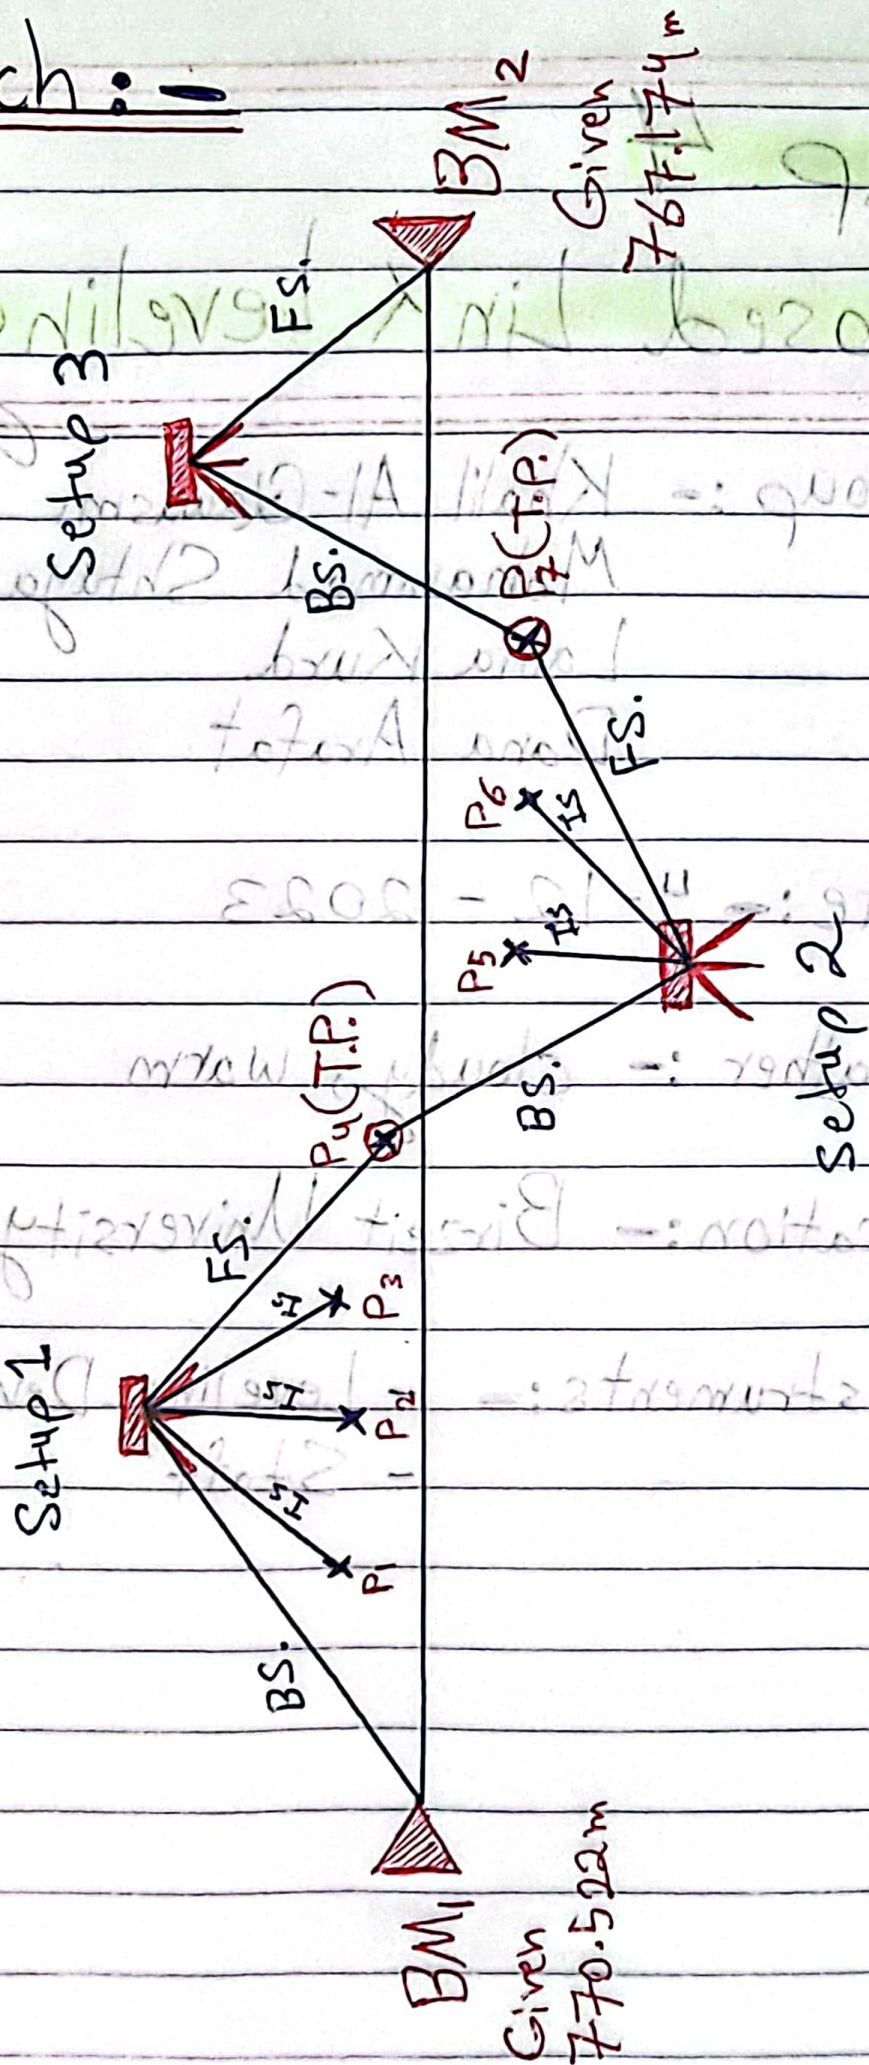 ch :-
BM1
Given
770.522m
BS.
Setup 1
IS
P1
IS
P2
IS
P3
FS.
P4 (T.P.)
BS.
Setup 2
IS
P5
IS
P6
FS.
P7 (T.P.)
BS.
Setup 3
FS.
BM2
Given
767.174m